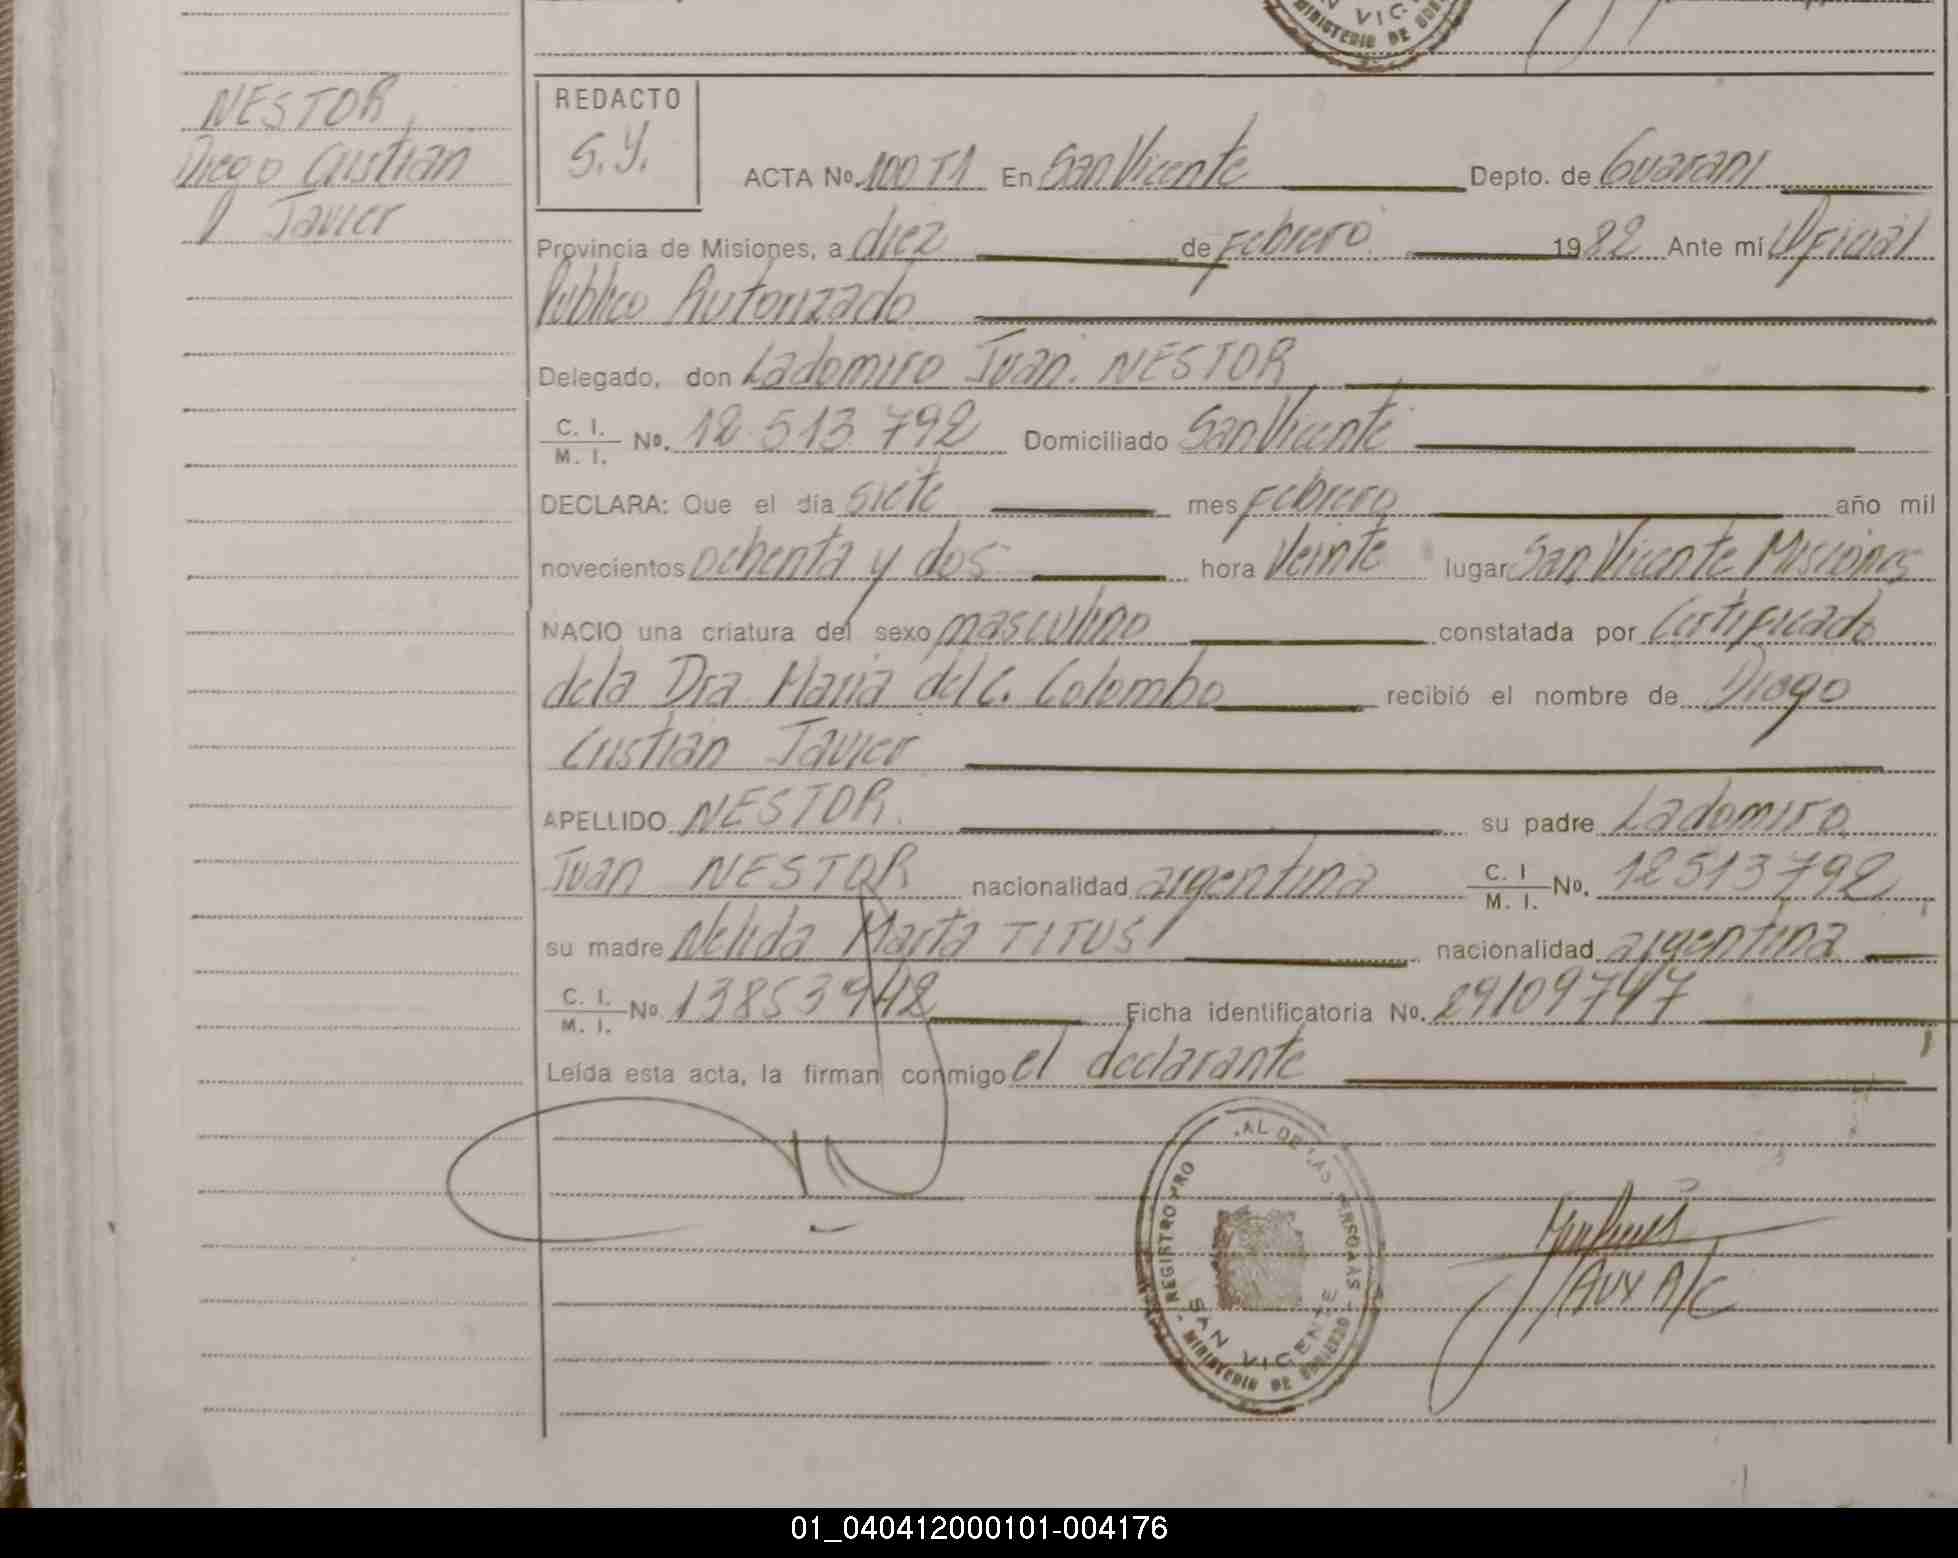 SAN VIC
MINISTERIO DE GOB
NESTOR
Diego Cristian
Javier
REDACTO
S.Y.
ACTA No. 100 T1 En San Vicente Depto. de Guarani
Provincia de Misiones, a diez de Febrero 1982 Ante mi Oficial
Publico Autorizado
Delegado, don Ladomiro Juan. NESTOR
C. I.
M. I. No. 12.513.792 Domiciliado San Vicente
DECLARA: Que el día siete mes Febrero año mil
novecientos ochenta y dos hora Veinte lugar San Vicente Misiones
NACIO una criatura del sexo masculino constatada por Certificado
de la Dra Maria del C. Colombo recibió el nombre de Diego
Cristian Javier
APELLIDO NESTOR. su padre Ladomiro
Juan NESTOR nacionalidad argentina C. I M. I. No. 12513792
su madre Nelida Marta TITUS nacionalidad argentina
C. I. M. I. No 13853942 Ficha identificatoria No. 29109747
Leída esta acta, la firman conmigo el declarante
REGISTRO PRO AL DE LAS PERSONAS
SAN VICENTE
MINISTERIO DE GOBIERNO
AUX A/C
01_040412000101-004176